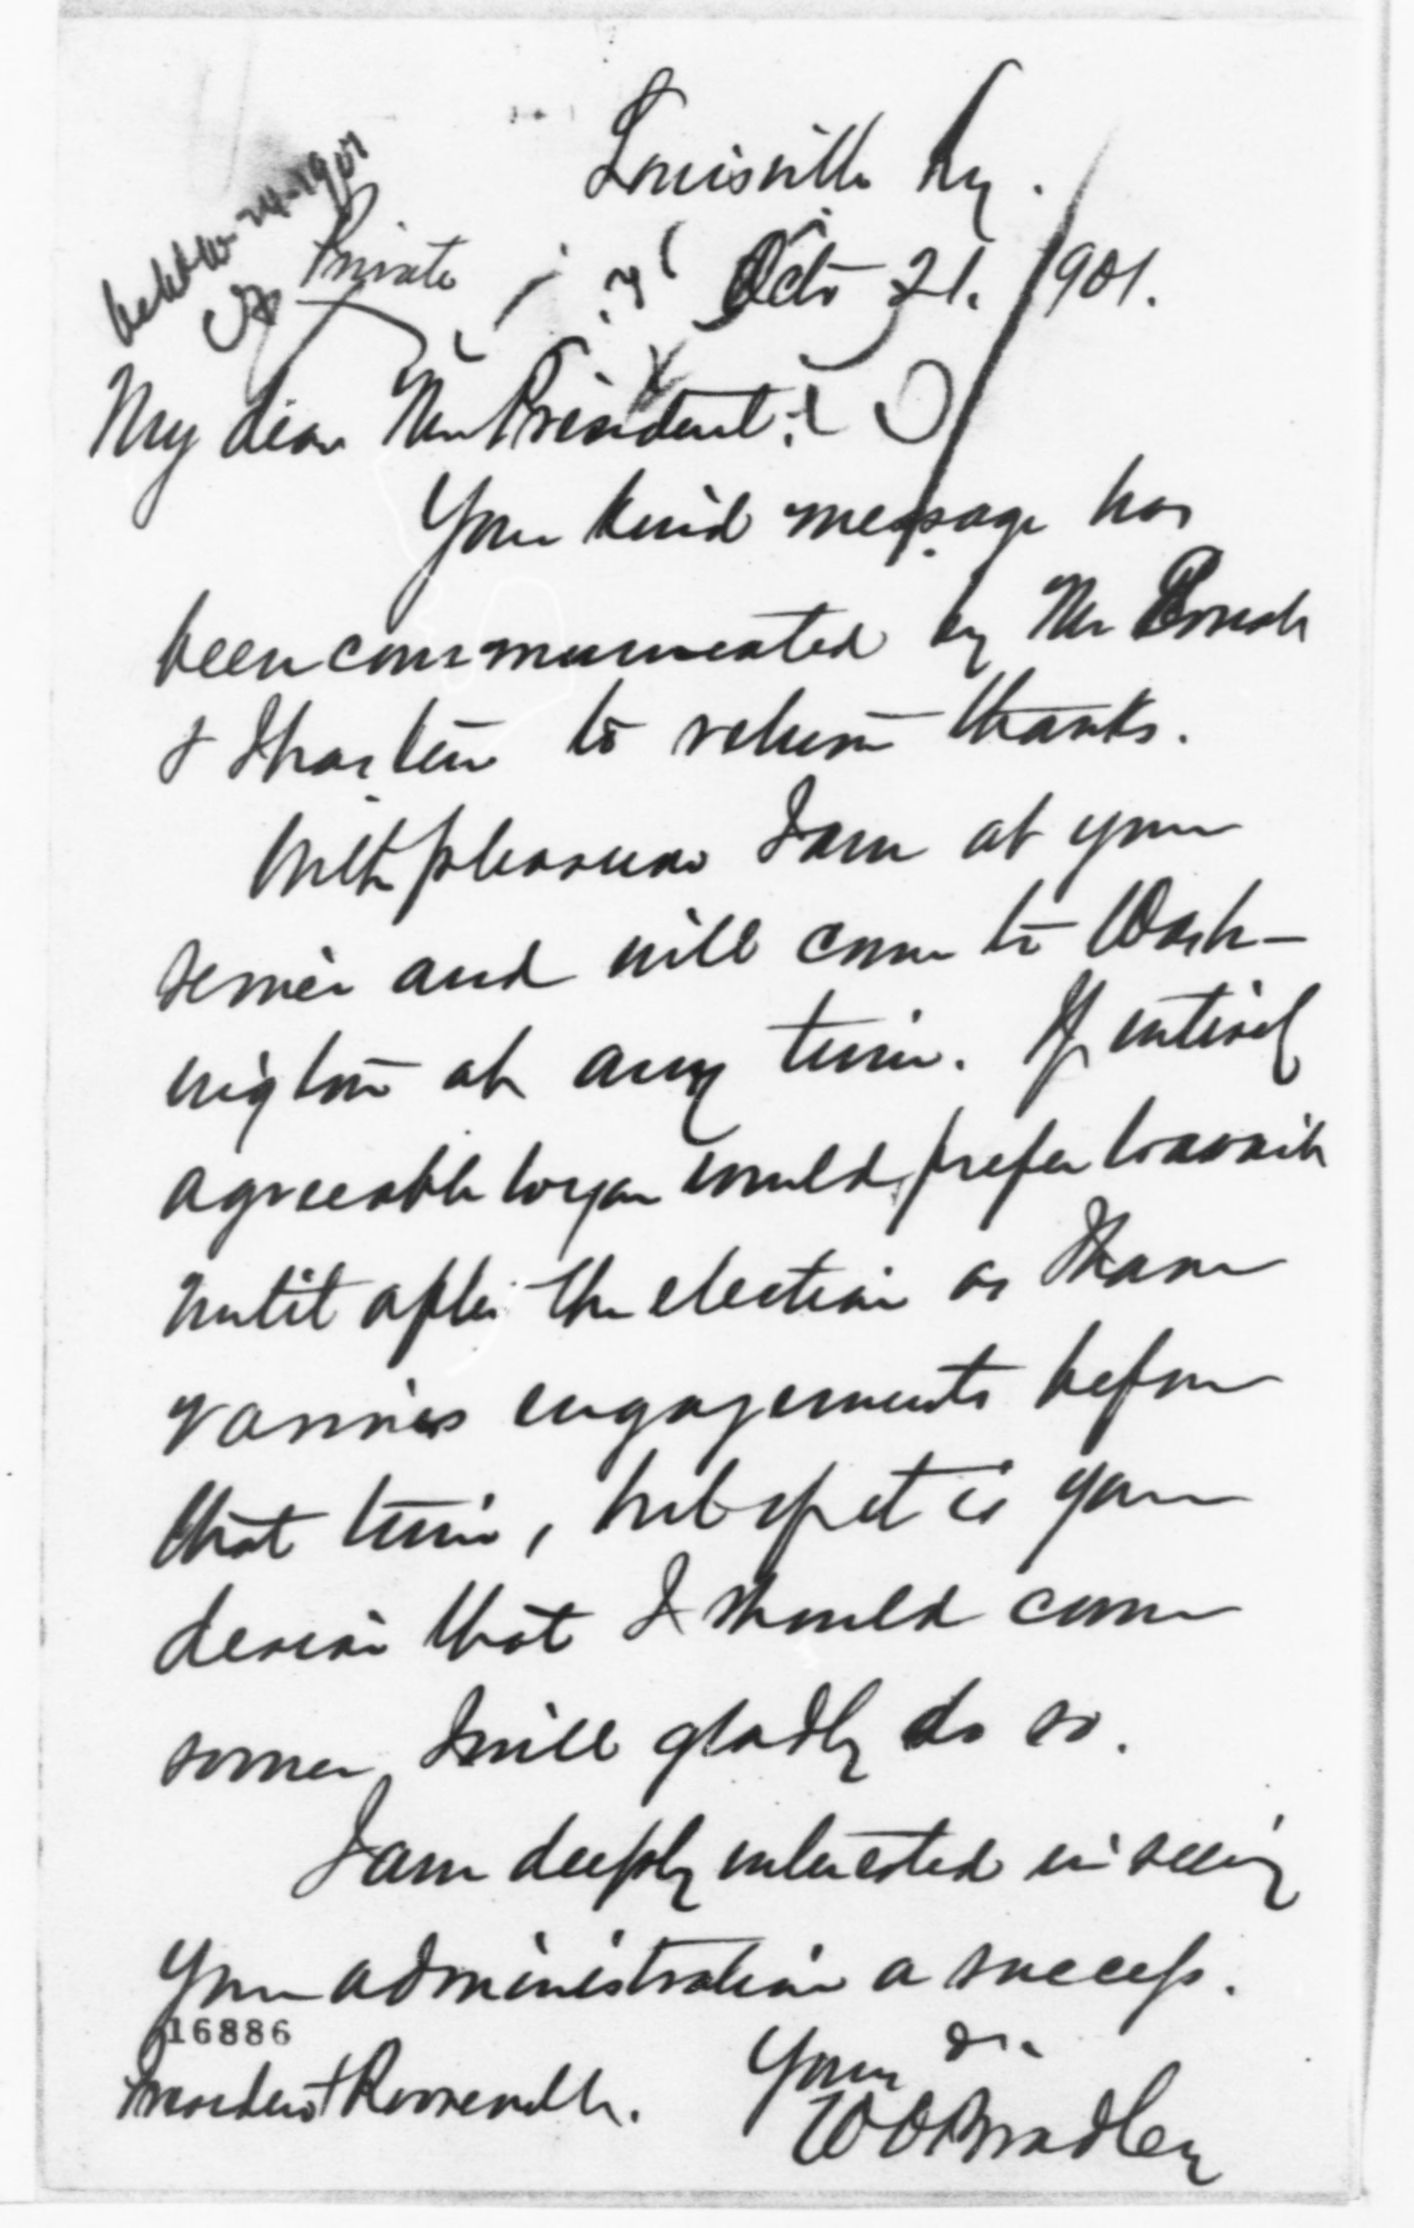 Louisville Ky.
Private
Octo 21. 1901.
My dear Mr President:
Your kind message has
been communicated by Mr
& I hasten to return thanks.
With pleasure I am at your
service and will come to Wash-
ington at any time. If entirely
agreeable to you would prefer to await
until after the election as I have
various engagements before
that time, but if it is your
desire that I should come
sooner I will gladly do so.
I am deeply interested in seeing
your administration a success.
16886
Yours &c.
President Roosevelt.
W O Bradley